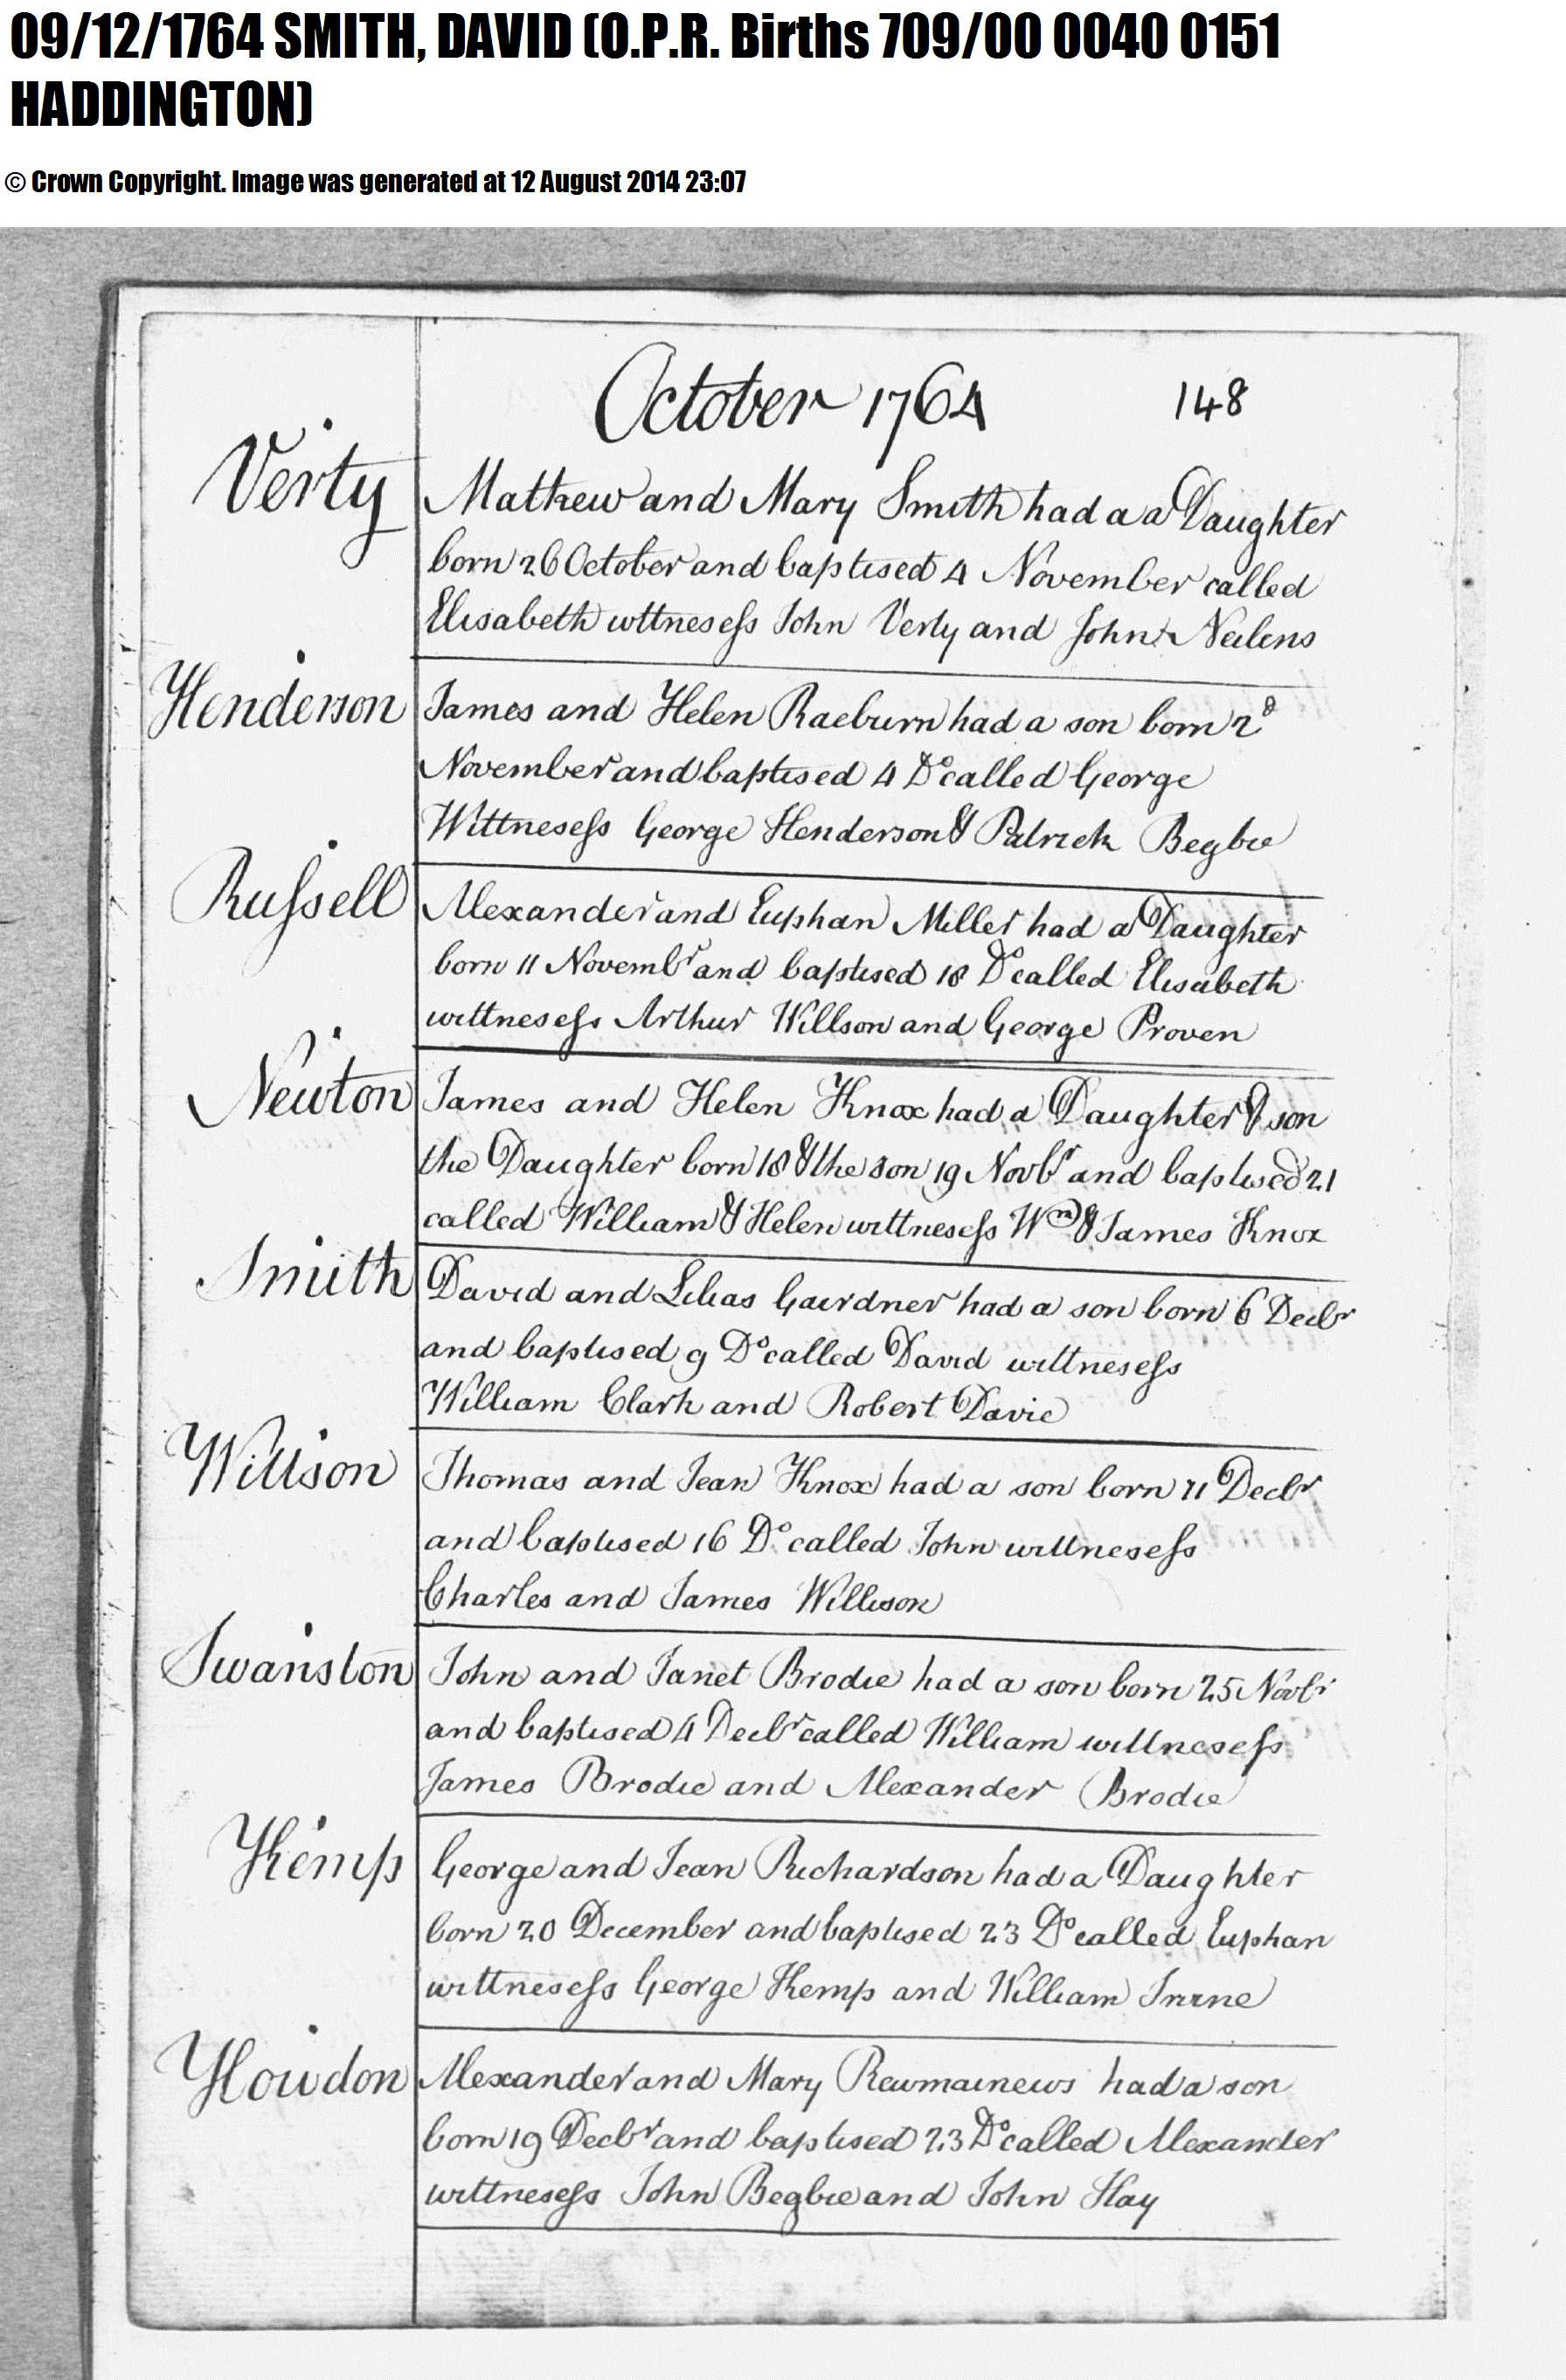 09/12/1764 SMITH, DAVID (O.P.R. Births 709/00 0040 0151
HADDINGTON)
© Crown Copyright. Image was generated at 12 August 2014 23:07
October 1764 148
Verty Mathew and Mary Smith had a a Daughter
born 26 October and baptised 4 November called
Elisabeth wttnesess John Verty and John Neilens
Henderson James and Helen Raeburn had a son born 2d
November and baptised 4 Do called George
Wittnesess George Henderson & Patrick Begbie
Russell Alexander and Euphan Miller had a Daughter
born 11 Novembr and baptised 18 Do called Elisabeth
wittnesess Arthur Willson and George Proven
Newton James and Helen Knox had a Daughter & son
the Daughter born 18 & the son 19 Novbr and baptised 21
called William & Helen wittnesess Wm & James Knox
Smith David and Lilias Gairdner had a son born 6 Decbr
and baptised 9 Do called David wittnesess
William Clark and Robert Davie
Willison Thomas and Jean Knox had a son born 11 Decbr
and baptised 16 Do called John wittnesess
Charles and James Willison
Swanston John and Janet Brodie had a son born 25 Novbr
and baptised 4 Decbr called William wittnesess
James Brodie and Alexander Brodie
Kemp George and Jean Richardson had a Daughter
born 20 December and baptised 23 Do called Euphan
wittnesess George Kemp and William
Howdon Alexander and Mary had a son
born 19 Decbr and baptised 23 Do called Alexander
wittnesess John Begbie and John Hay